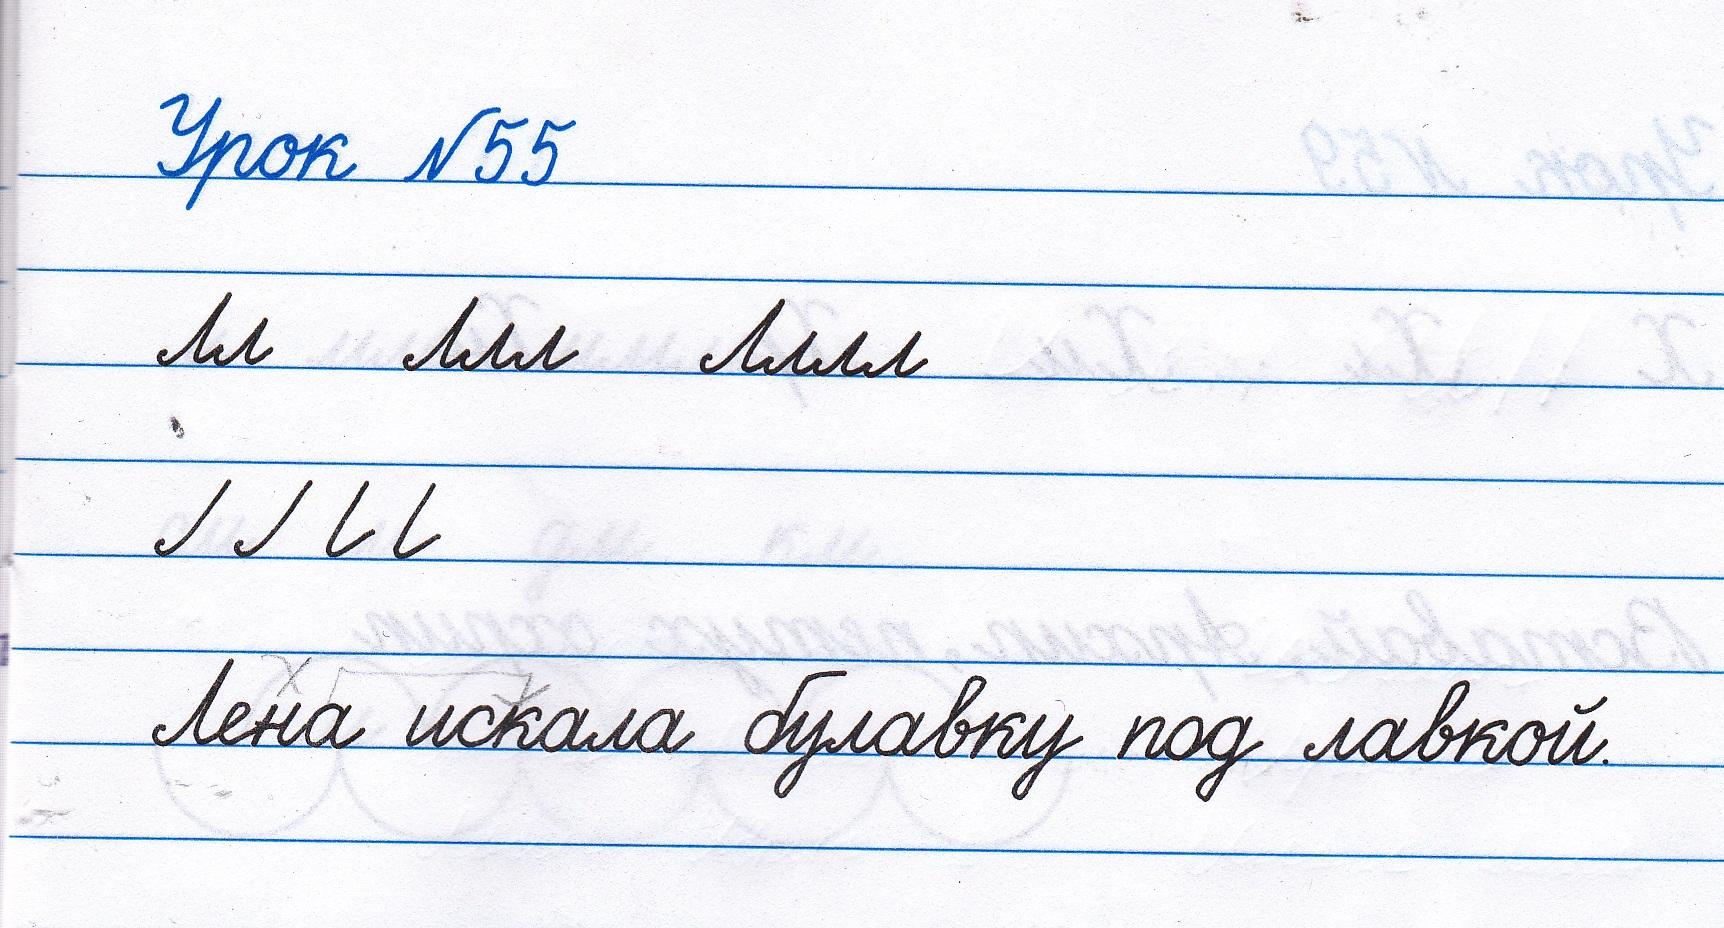 Урок №55
Лл Ллл Лллл
Лена искала булавку под лавкой.